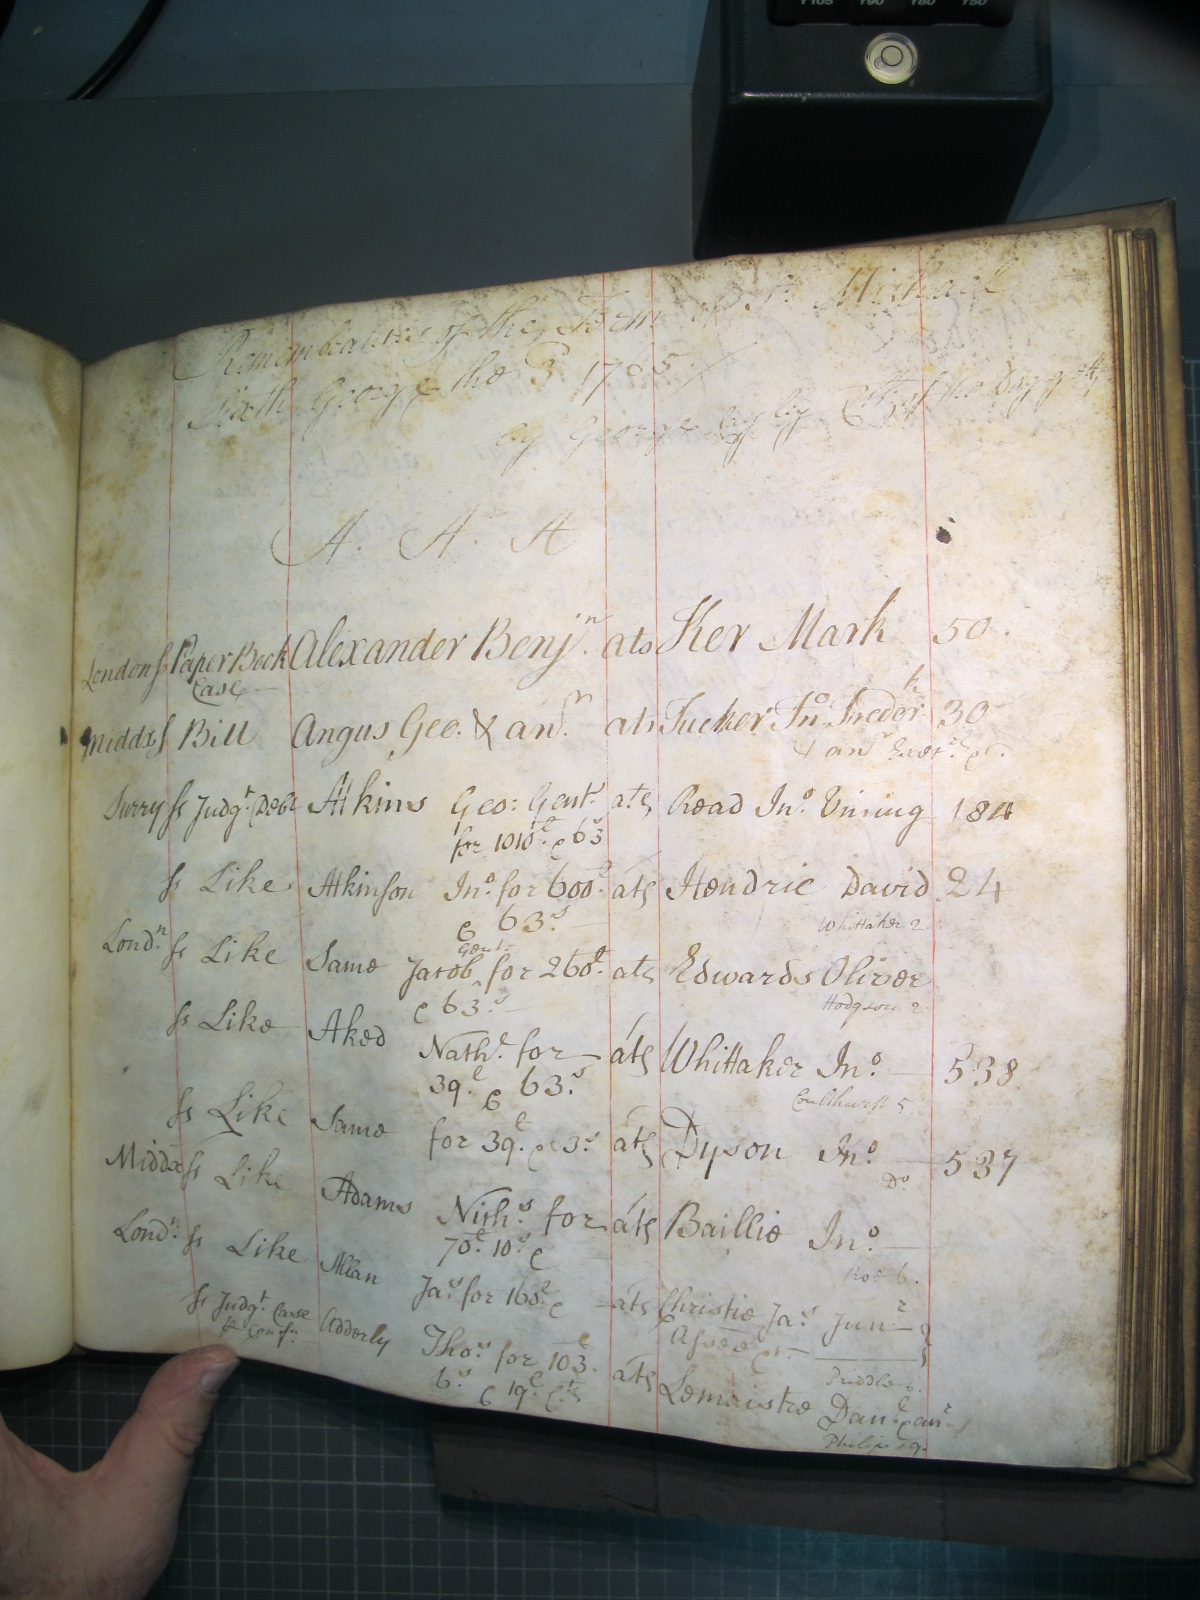 Y105 Y90 Y80 Y50
Remembrances of the Term of St. Michael
Sixth George the 3d. 1765
by George
A. A. A
London ss Paper Book Alexander Benjn. ats Ker Mark 50.
Case
Middx ss Bill Angus Geo. & anr. ats Tucker Jno. Freder.k 30
& anr Exors. &c.
Surry ss Judgt. Debt Atkins Geo: Gent. ats Read Jno. Vining 184
for 1010£ & 63s
ss Like Atkinson Jno. for 600£ ats Hendrie David 24
& 63s. Whittaker 2.
Londn. ss Like Same Jacob Gent. for 260£. ats Edwards Oliver
& 63s. Hodgson 2.
ss Like Aked Nathl. for ats Whittaker Jno. 538
39£. & 63s. Coulthurst 5
ss Like Same for 39£. & 63s ats Dyson Jno. 537
Do.
Middx ss Like Adams Nichs. for ats Baillie Jno.
70£ 10s. & Roe 6.
Londn. ss Like Allan Jas. for 160£ & ats Christie Jas. Junr
Assee &c. Priddle 6.
ss Judgt. Case Adderly Thos. for 103£. ats Lemaistre Danl. & anr
p Confn. 6s. & 19£ Philips 9.